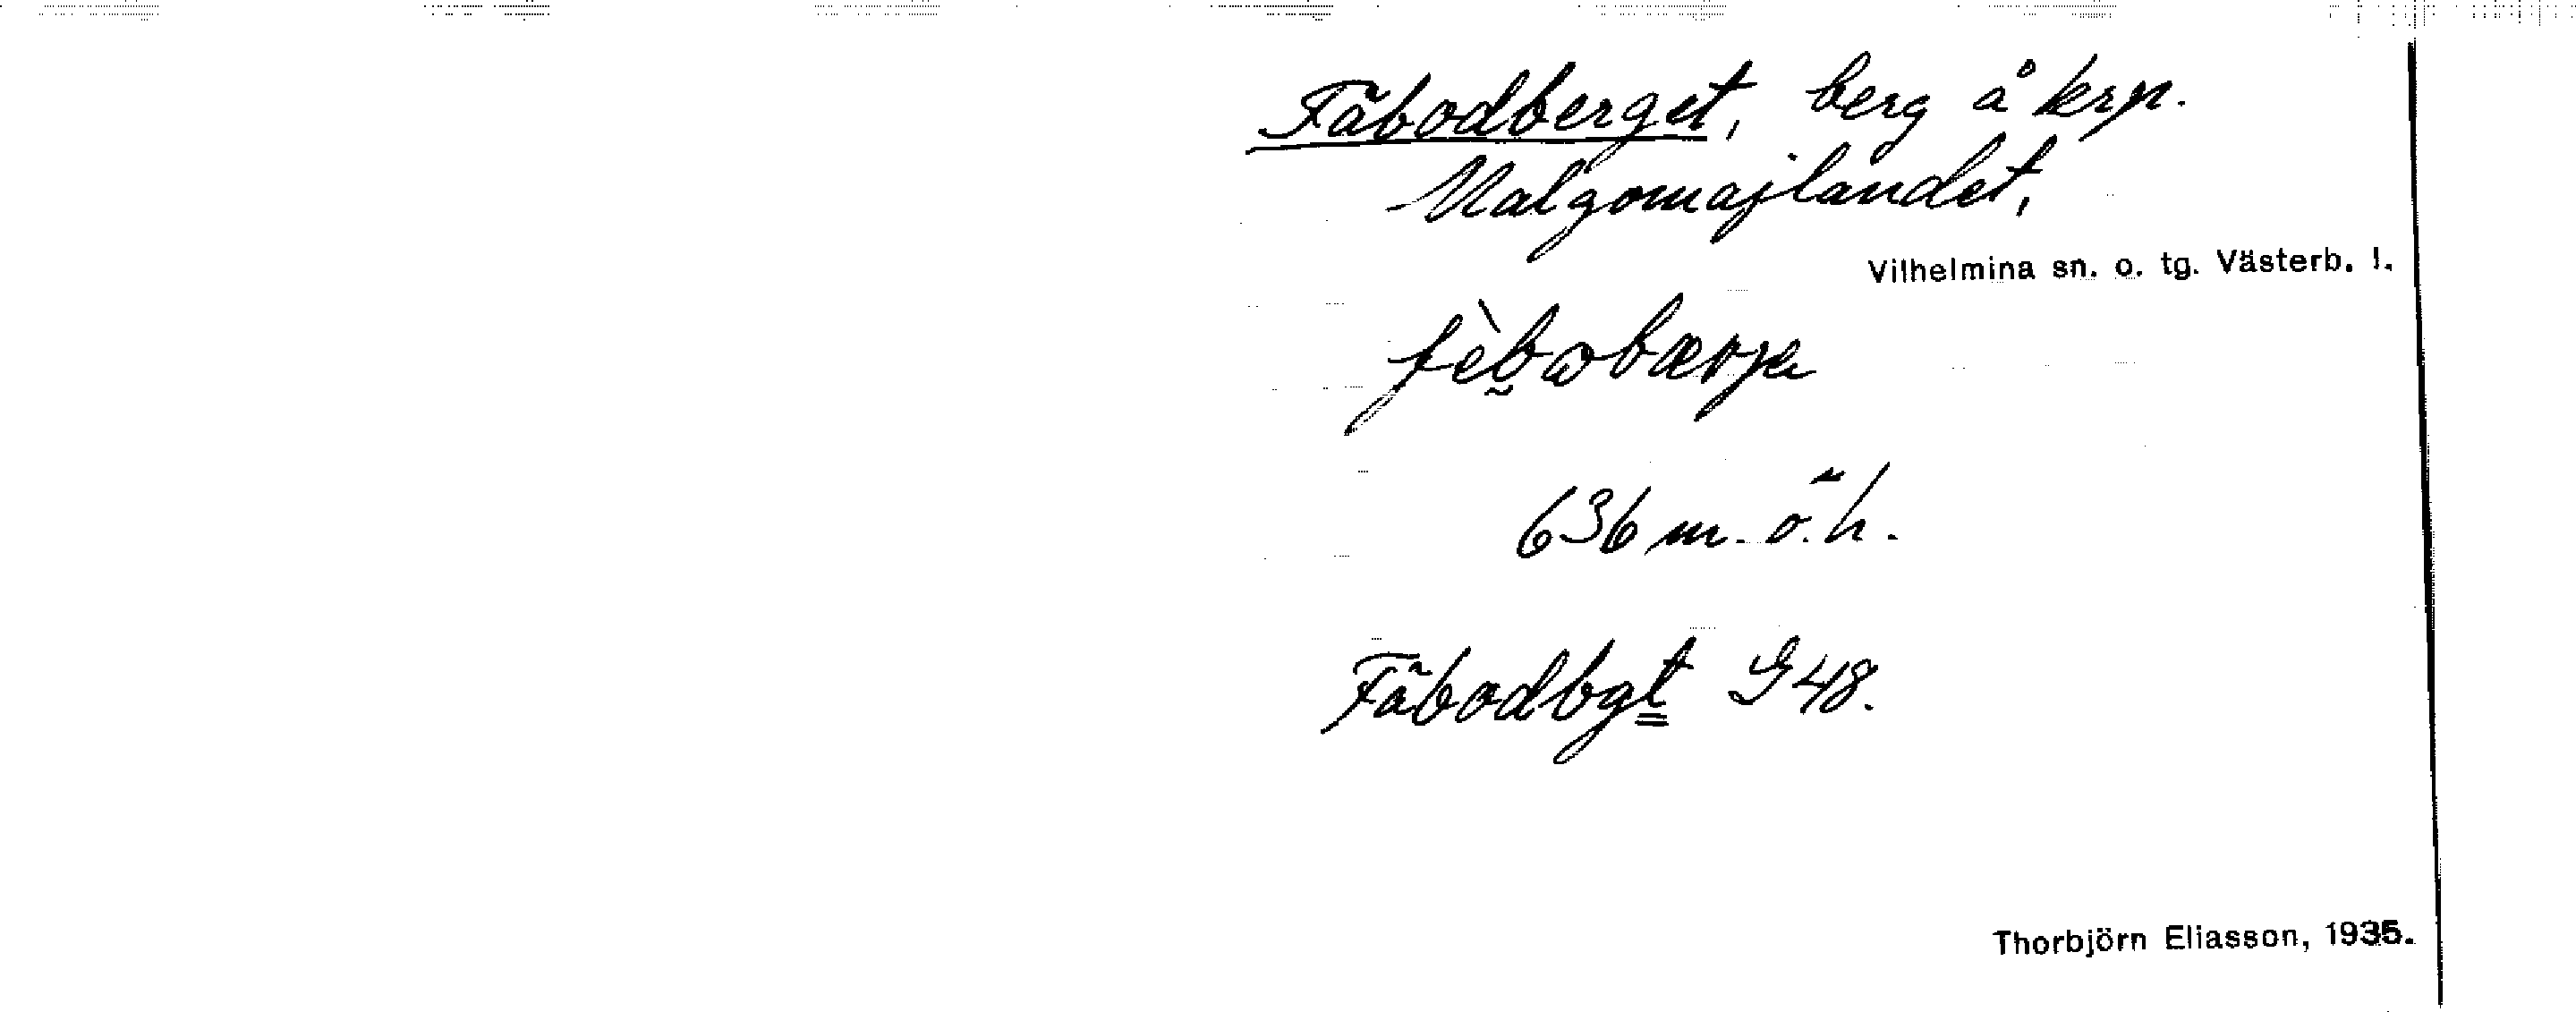 Fäbodberget, berg å krp.
Malgomajlandet,
Vilhelmina sn. o. tg. Västerb. l.
636 m. ö. h.
Fäbodbgt G 48.
Thorbjörn Eliasson, 1935.